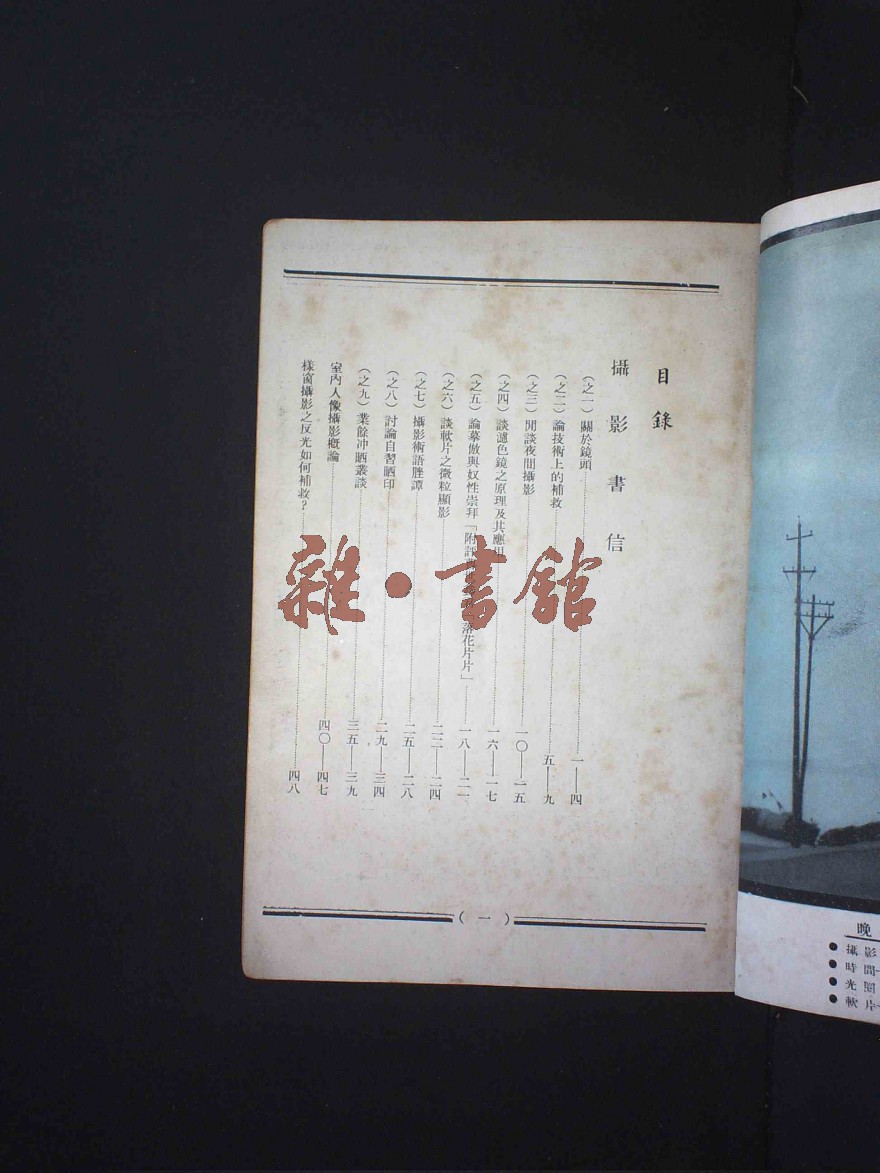 目錄
攝影書信
（之一）關於鏡頭 一——四
（之二）論技術上的補救 五——九
（之三）閒談夜間攝影 一〇——一五
（之四）談濾色鏡之原理及其應用 一六——一七
（之五）論摹倣與奴性崇拜「附評 落花片片」 一八——二一
（之六）談軟片之微粒顯影 二二——二四
（之七）攝影術語脞譚 二五——二八
（之八）討論自習晒印 二九——三四
（之九）業餘冲晒叢談 三五——三九
室內人像攝影概論 四〇——四七
樣窗攝影之反光如何補救？ 四八
（一）
雜·書館
晚
●攝影
●時間
●光圈
●軟片